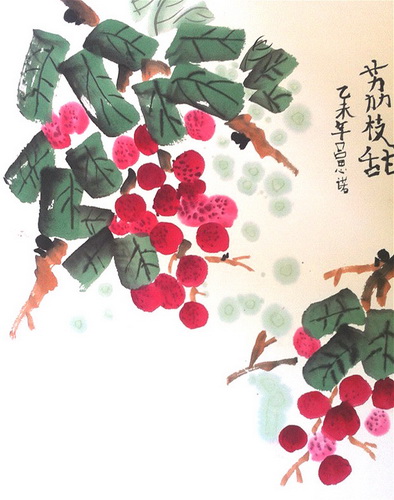 荔枝甜
乙未年吕思诺